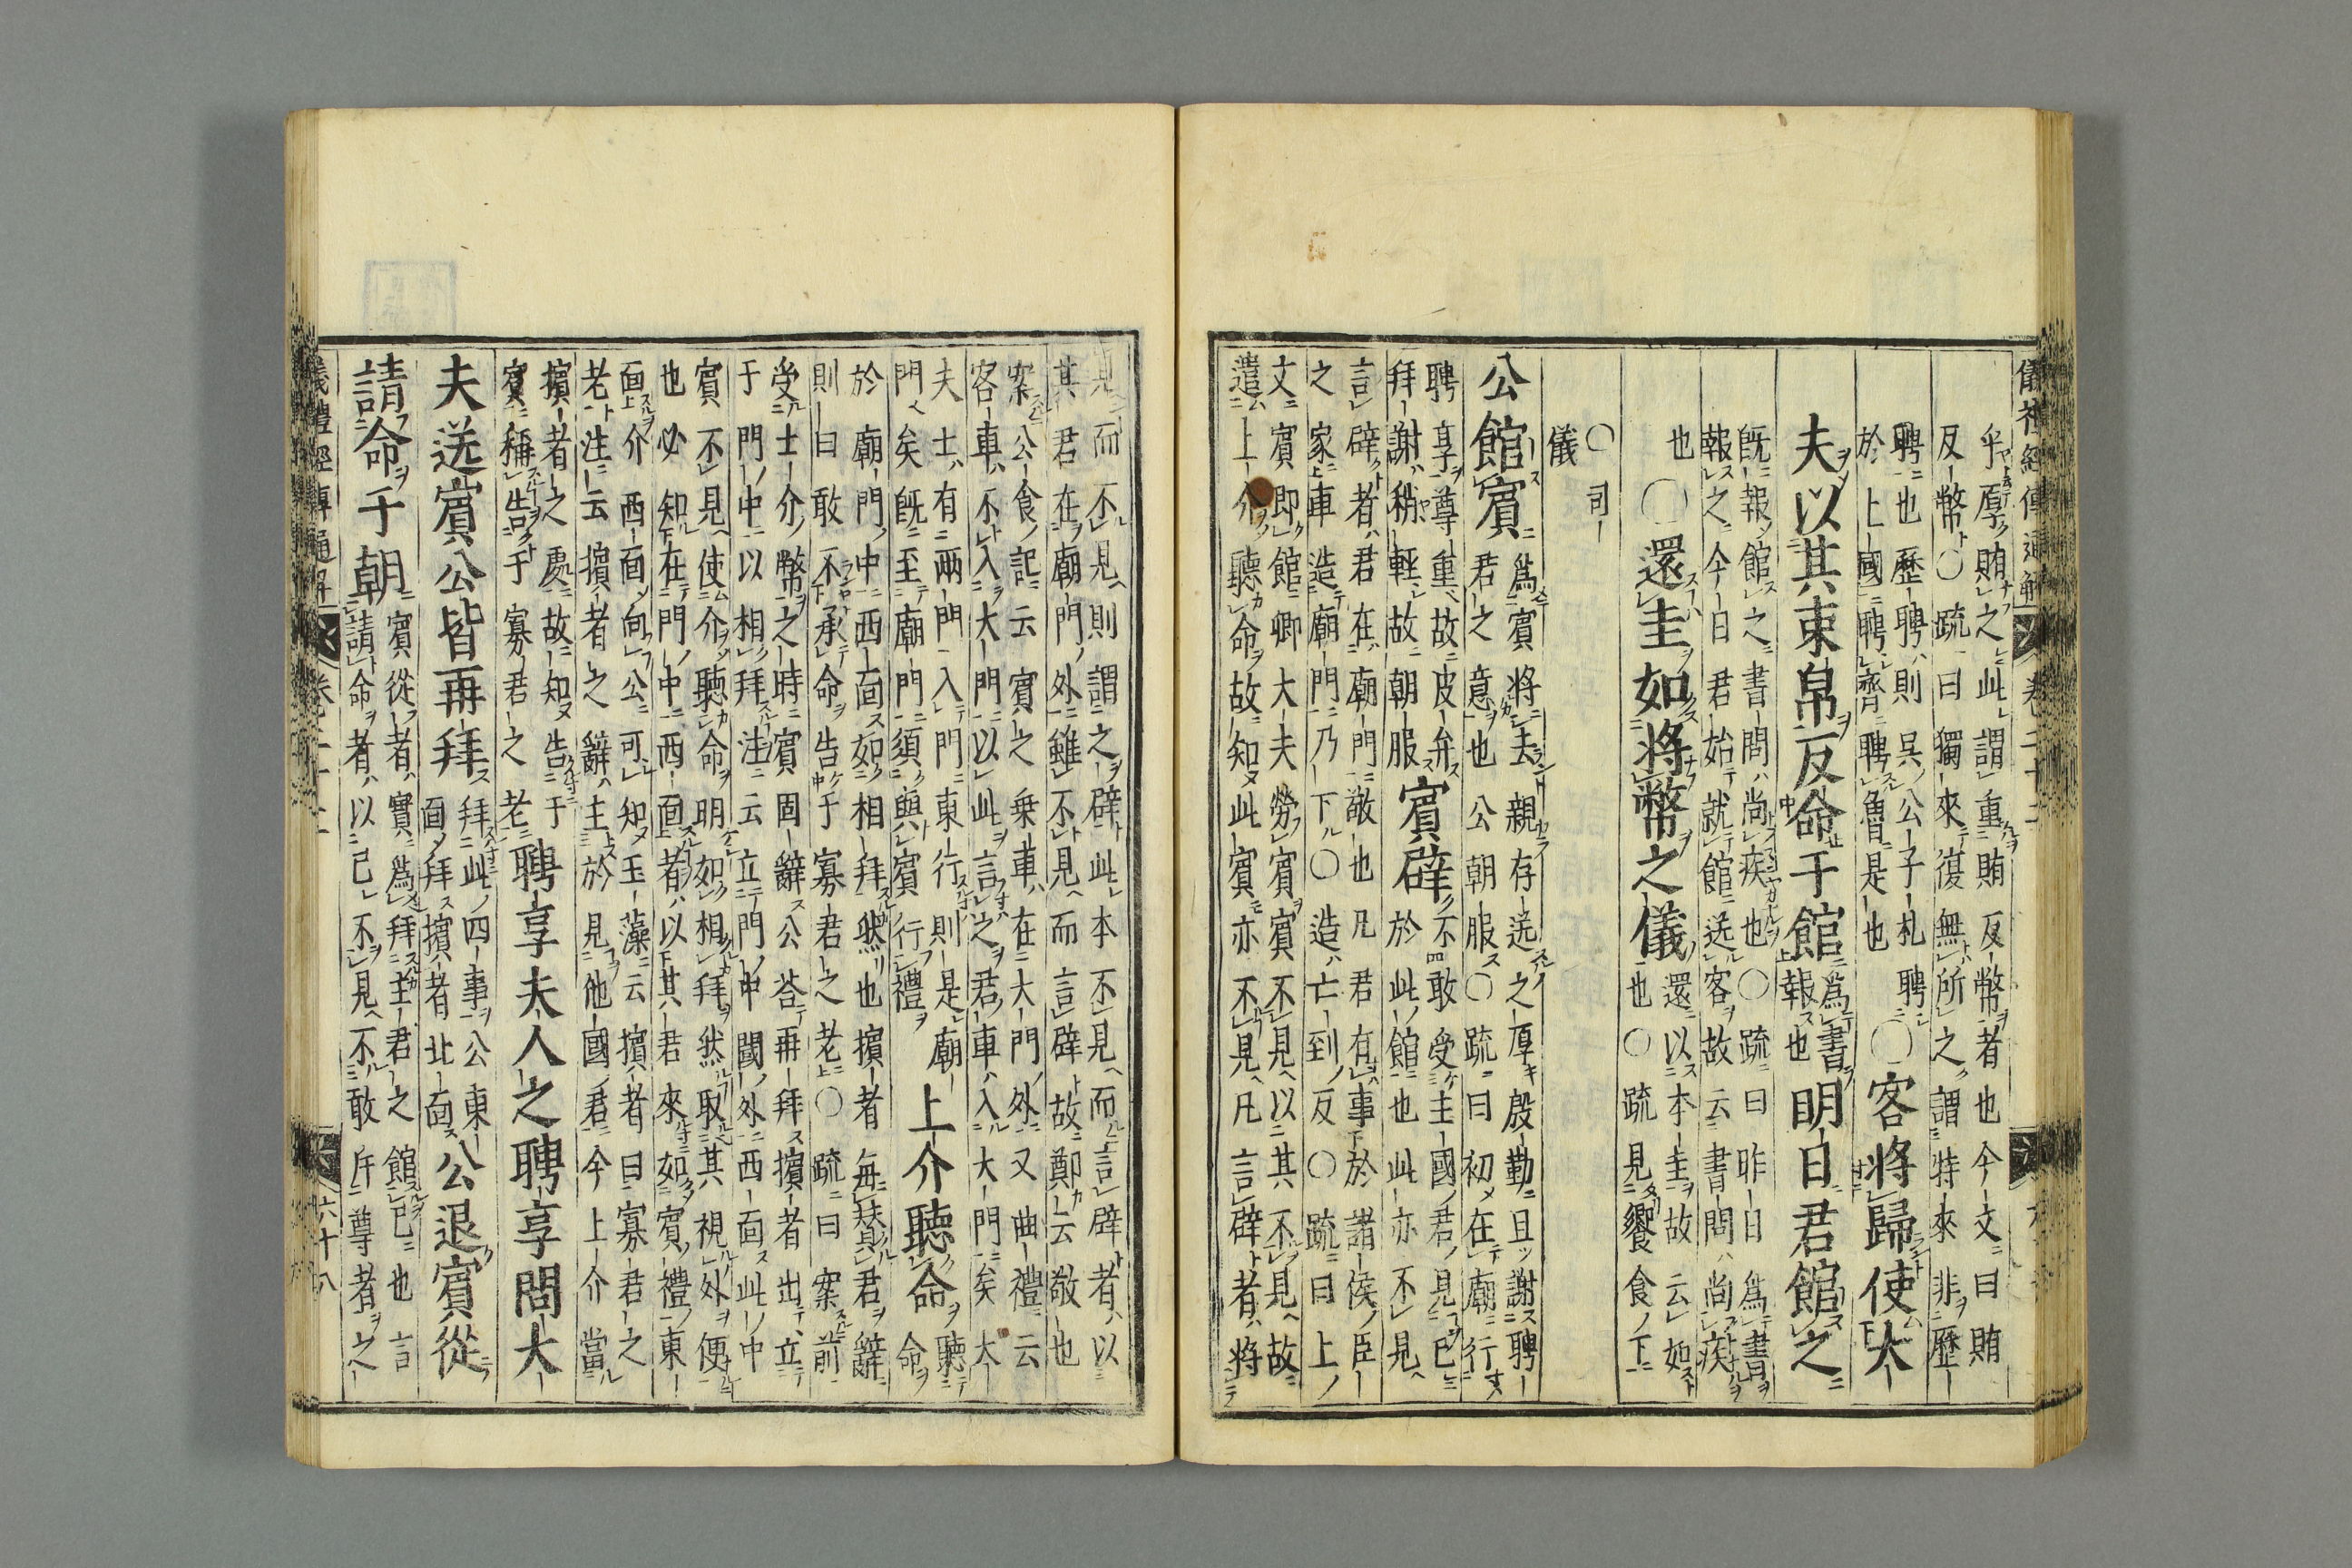 儀禮經傳通解 卷二十二
乎厚賄之此謂重賄反幣者也今文曰賄
反幣○疏曰獨來復無所之謂特來非歷
聘也歷聘則吳公子札聘
於上國聘齊聘魯是也
○客將歸使大
夫以其束帛反命于館
爲書
報也
明日君館之
既報館之書問尚疾也○疏曰昨日爲書
報之今日君始就館送客故云書問尚疾
也
○還圭如將幣之儀
還以本圭故云如
也○疏見饗食下
○司
儀
公館賓
爲賓將去親存送之厚殷勤且謝聘
君之意也公朝服○疏曰初在廟行
聘享尊重故皮弁
拜謝稍輕故朝服
賓辟
不敢受主國君見己
於此館也此亦不見
言辟者君在廟門敬也凡君有事於諸侯臣
之家車造廟門乃下○造亡到反○疏曰上
文賓即館卿大夫勞賓賓不見以其不見故
遣上介聽命故知此賓亦不見凡言辟者將
見而不見則謂之辟此本不見而言辟者以
其君在廟門外雖不見而言辟故鄭云敬也
案公食記云賓之乗車在大門外又曲禮云
客車不入大門以此言之君車入大門矣大
夫士有兩門入門東行則是廟
門矣既至廟門須與賓行禮
上介聽命
聽命
於廟門中西面如相拜然也擯者毎賛君辭
則曰敢不承命告于寡君之老○疏曰案前
受士介幣之時賓固辭公荅再拜擯者出立
于門中以相拜注云立門中閾外西面此中
賓不見使介聽命明如相拜然取其視外便
也必知在門中西面者以其君來如賓禮東
面介西面向公可知玉藻云擯者曰寡君之
老注云擯者之辭主於見他國君今上介當
擯者之處故知告于
賓稱告于寡君之老
聘享夫人之聘享問大
夫送賓公皆再拜
拜此四事公東
面拜擯者北面
公退賓從
請命于朝
賓從者實爲拜主君之館己也言
請命者以己不見不敢斥尊者之
儀禮經傳通解 卷二十二 六十八